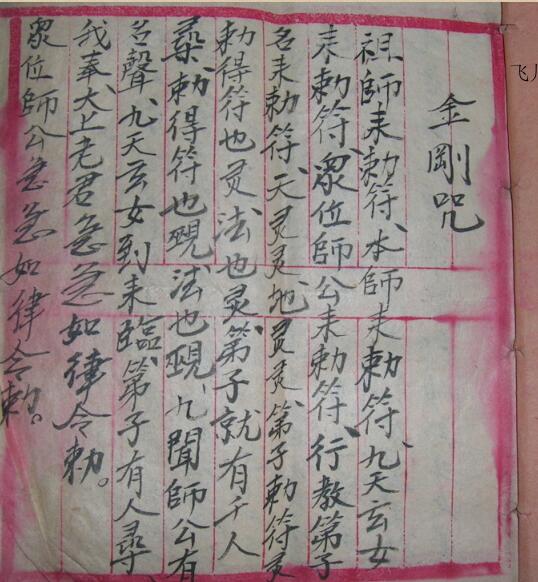 金剛咒
祖師来勅符、本師来勅符、九天玄女
来勅符、眾位師公来勅符、行教第子
名来勅符、天灵灵地灵灵、第子勅符灵
勅得符也灵法也灵、第子就有千人
勅得符也現法也現、九聞師公有
声聲、九天玄女到来臨、第子有人尋
我奉大上老君急急如律令勅。
眾位師公急急如律令勅。
飞